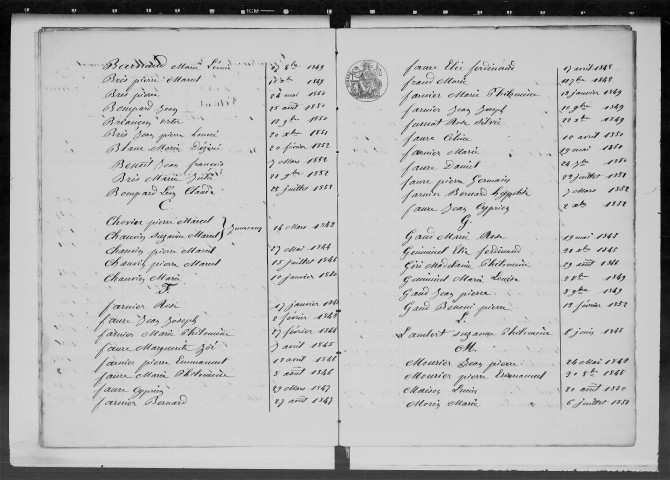 Bertrand Marie Léonie 27 8bre 1849
Brès pierre Marcel 1849
Brès pierre 24 mai 1850
Boupard Jean 15 août 1850
Briançon Victor 12 9bre 1850
Brès Jean pierre Louis 20 Xbre 1851
Blanc Marie Désiré 20 février 1852
Benoit Jean françois 7 Mars 1852
Brès Marie Julie 21 9bre 1852
Boupard Léon Claude 25 juillet 1852
C.
Chevier pierre Marcel
Chauvin Suzanne Marcel } Jumeaux 14 Mars 1842
Chauvin pierre Marcel 27 Mai 1844
Chauvin pierre Marcel 15 juillet 1846
Chauvin Marie 10 janvier 1850
F.
farnier Rose 17 janvier 1844
faure Jean Joseph 2 février 1844
farnier Marie Philomène 27 février 1844
faure Marguerite Zoé 7 avril 1845
farnier pierre Emmanuel 12 avril 1846
faure Marie Philomène 8 août 1846
faure Cyprien 29 Mars 1847
farnier Bernard 27 août 1847
faure Elie ferdinand 17 avril 1848
Marie 11 7bre 1848
farnier Marie Philomène 12 janvier 1849
farnier Jean Joseph 11 9bre 1849
Rose 22 Xbre 1849
faure Céline 10 avril 1850
farnier Marie 19 mai 1850
faure Daniel 24 7bre 1850
faure pierre Germain 22 juillet 1851
farnier Bernard hyppolite 7 Mars 1852
faure Jean Cyprien 2 Xbre 1852
G.
Gaud Marie Rose 19 mai 1843
Guiminel Elie ferdinand 20 Xbre 1845
Géri Madelaine Philomène 29 août 1846
Guiminel Marie Louise 3 8bre 1849
Gaud Jean pierre 8 9bre 1849
Gaud Bénoni pierre 13 février 1852
L.
Lambert suzanne Philomène 8 juin 1846
M.
Mourier Jean pierre 24 Mai 1842
Mourier pierre Emmanuel 30 8bre 1845
Maison Louis 20 août 1850
Morin Marie 6 juillet 1852